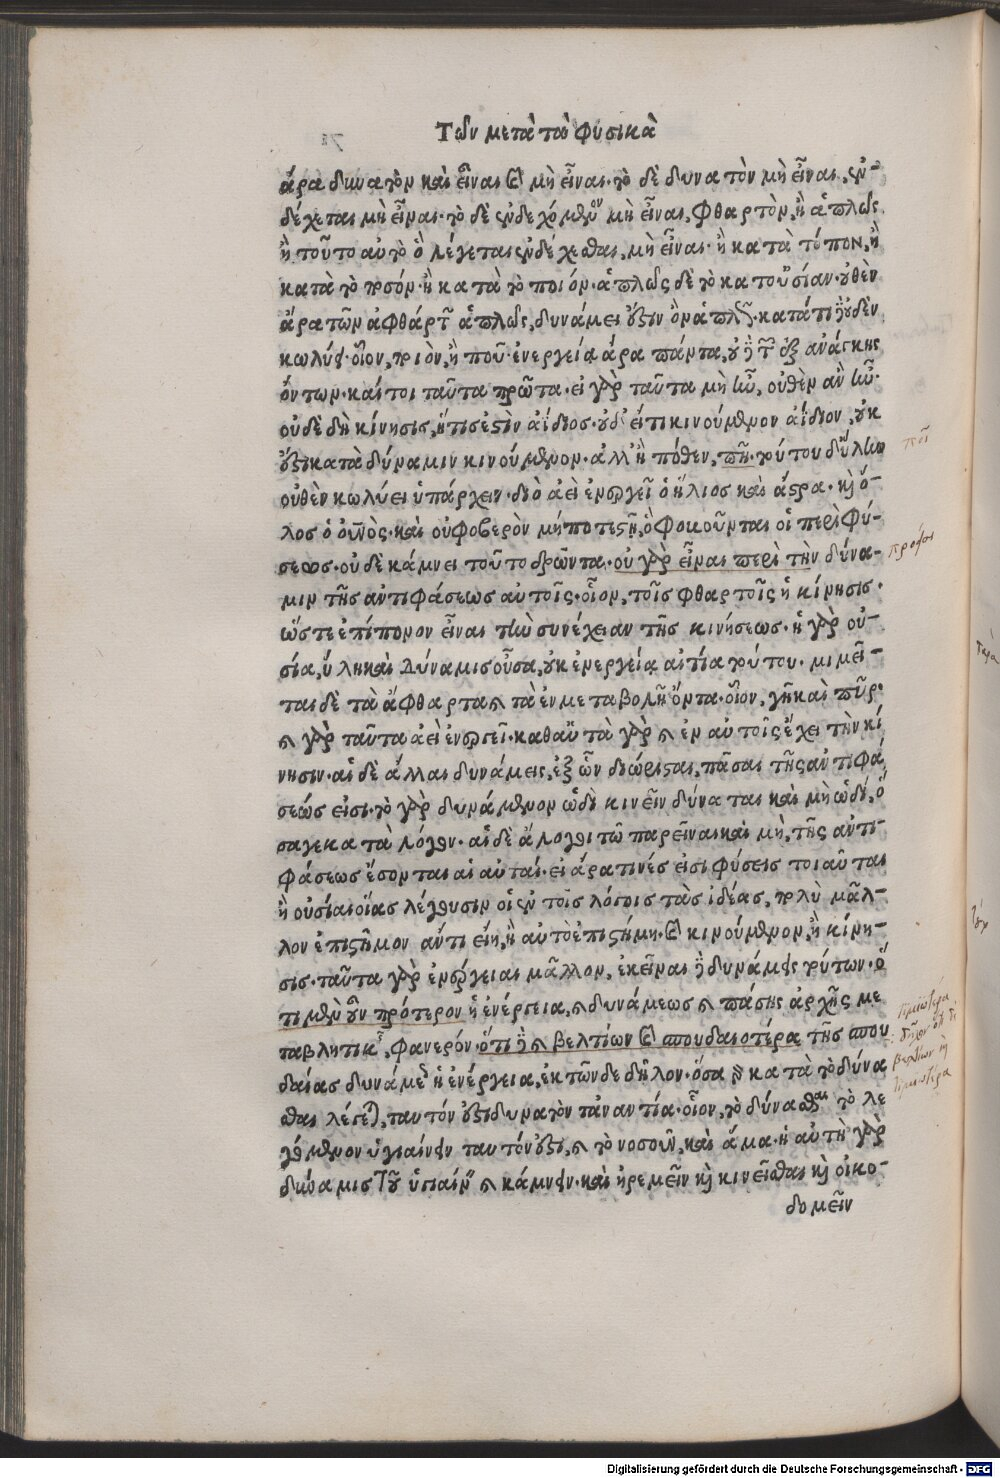 Τῶν μετὰ τὰ Φυσικὰ
ἄρα δυνατὸν καὶ εἶναι καὶ μὴ εἶναι. τὸ δὲ δυνατὸν μὴ εἶναι, ἐν-
δέχεται μὴ εἶναι. τὸ δὲ ἐνδεχόμενον μὴ εἶναι, φθαρτὸν, ἢ ἁπλῶς
ἢ τοῦτο αὐτὸ ὃ λέγεται ἐνδέχεσθαι, μὴ εἶναι. ἢ κατὰ τόπον, ἢ
κατὰ τὸ ποσόν. ἢ κατὰ τὸ ποιόν. ἁπλῶς δὲ τὸ κατ οὐσίαν. οὐθὲν
ἄρα τῶν ἀφθάρτων ἁπλῶς, δυνάμει ἐστὶν ὂν ἁπλῶς. κατάτι δ οὐδὲν
κωλύει. οἷον, ποιὸν, ἢ ποῦ. ἐνεργείᾳ ἄρα πάντα, οὐδὲ τῶν ἐξ ἀνάγκης
ὄντων. καίτοι ταῦτα πρῶτα. εἰ γὰρ ταῦτα μὴ ἦν, οὐθὲν ἂν ἦν.
οὐδὲ δὴ κίνησις, ἥτις ἐστὶν ἀΐδιος. οὐδ' εἴ τι κινούμενον ἀΐδιον, οὐκ
ἔστι κατὰ δύναμιν κινούμενον. ἀλλ' ἢ πόθεν, πῆ. τούτου δ' ὕλην
οὐθὲν κωλύει ὑπάρχειν. διὸ ἀεὶ ἐνεργεῖ ὁ ἥλιος καὶ ἄστρα. καὶ ὅ-
λος ὁ οὐνὸς. καὶ οὐ φοβερὸν μήποτε στῇ, ὃ φοβοῦνται οἱ περὶ φύ-
σεως. οὐδὲ κάμνει τοῦτο δρῶντα. οὐ γὰρ εἶναι περὶ τὴν δύνα-
μιν τῆς ἀντιφάσεως αὐτοῖς. οἷον, τοῖς φθαρτοῖς ἡ κίνησις.
ὥστε ἐπίπονον εἶναι τὴν συνέχειαν τῆς κινήσεως. ἡ γὰρ οὐ-
σία, ὕλη καὶ Δύναμις οὖσα, οὐκ ἐνεργείᾳ αἰτία τούτου. μιμεῖ-
ται δὲ τὰ ἄφθαρτα καὶ τὰ ἐν μεταβολῇ ὄντα. οἷον, γῆ καὶ πῦρ.
καὶ γὰρ ταῦτα ἀεὶ ἐνεργεῖ. καθ αὑτὰ γὰρ καὶ ἐν αὐτοῖς ἔχει τὴν κί
νησιν. αἱ δὲ ἄλλαι δυνάμεις, ἐξ ὧν διώρισται, πᾶσαι τῆς ἀντιφά
σεώς εἰσι. τὸ γὰρ δυνάμενον ὡδὶ κινεῖν δύναται καὶ μὴ ὡδί, ὅ
σα γε κατὰ λόγον. αἱ δὲ ἄλογοι τῷ παρεῖναι καὶ μὴ, τῆς ἀντι-
φάσεως ἔσονται αἱ αὐταί. εἰ ἄρα τινές εἰσι φύσεις τοιαῦται
ἢ οὐσίαι οἵας λέγουσιν οἱ ἐν τοῖς λόγοις τὰς ἰδέας, πολὺ μᾶλ-
λον ἐπιστῆμον ἄν τι εἴη, ἢ αὐτὸ ἐπιστήμη. καὶ κινούμενον, ἢ κίνη-
σις. ταῦτα γὰρ ἐνέργειαι μᾶλλον, ἐκεῖναι δὲ δυνάμεις τούτων. ὅ
τι μὲν οὖν πρότερον ἡ ἐνέργεια, καὶ δυνάμεως καὶ πάσης ἀρχῆς με
ταβλητικῆς, φανερόν. ὅτι δὲ καὶ βελτίων καὶ σπουδαιοτέρα τῆς σπου
δαίας δυνάμεως ἡ ἐνέργεια, ἐκ τῶνδε δῆλον. ὅσα γὰρ κατὰ τὸ δύνα
σθαι λέγεται, ταυτόν ἐστι δυνατὸν τἀναντία. οἷον, τὸ δύνασθαι τὸ λε
γόμενον ὑγιαίνειν ταυτόν ἐστι, καὶ τὸ νοσοῦν, καὶ ἅμα. ἡ αὐτὴ γὰρ
δύναμις τοῦ ὑγιαίνειν καὶ κάμνειν. καὶ ἠρεμεῖν καὶ κινεῖσθαι καὶ οἰκο-
δομεῖν
Digitalisierung gefördert durch die Deutsche Forschungsgemeinschaft - DFG